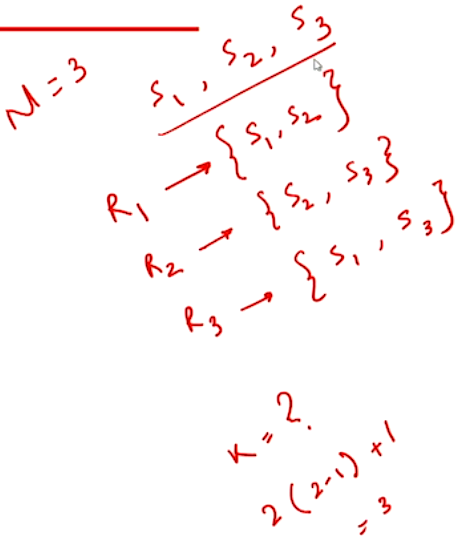 N = 3
S1, S2, S3
R1 → {S1, S2}
R2 → {S2, S3}
R3 → {S1, S3}
K = 2.
2(2-1) + 1
= 3